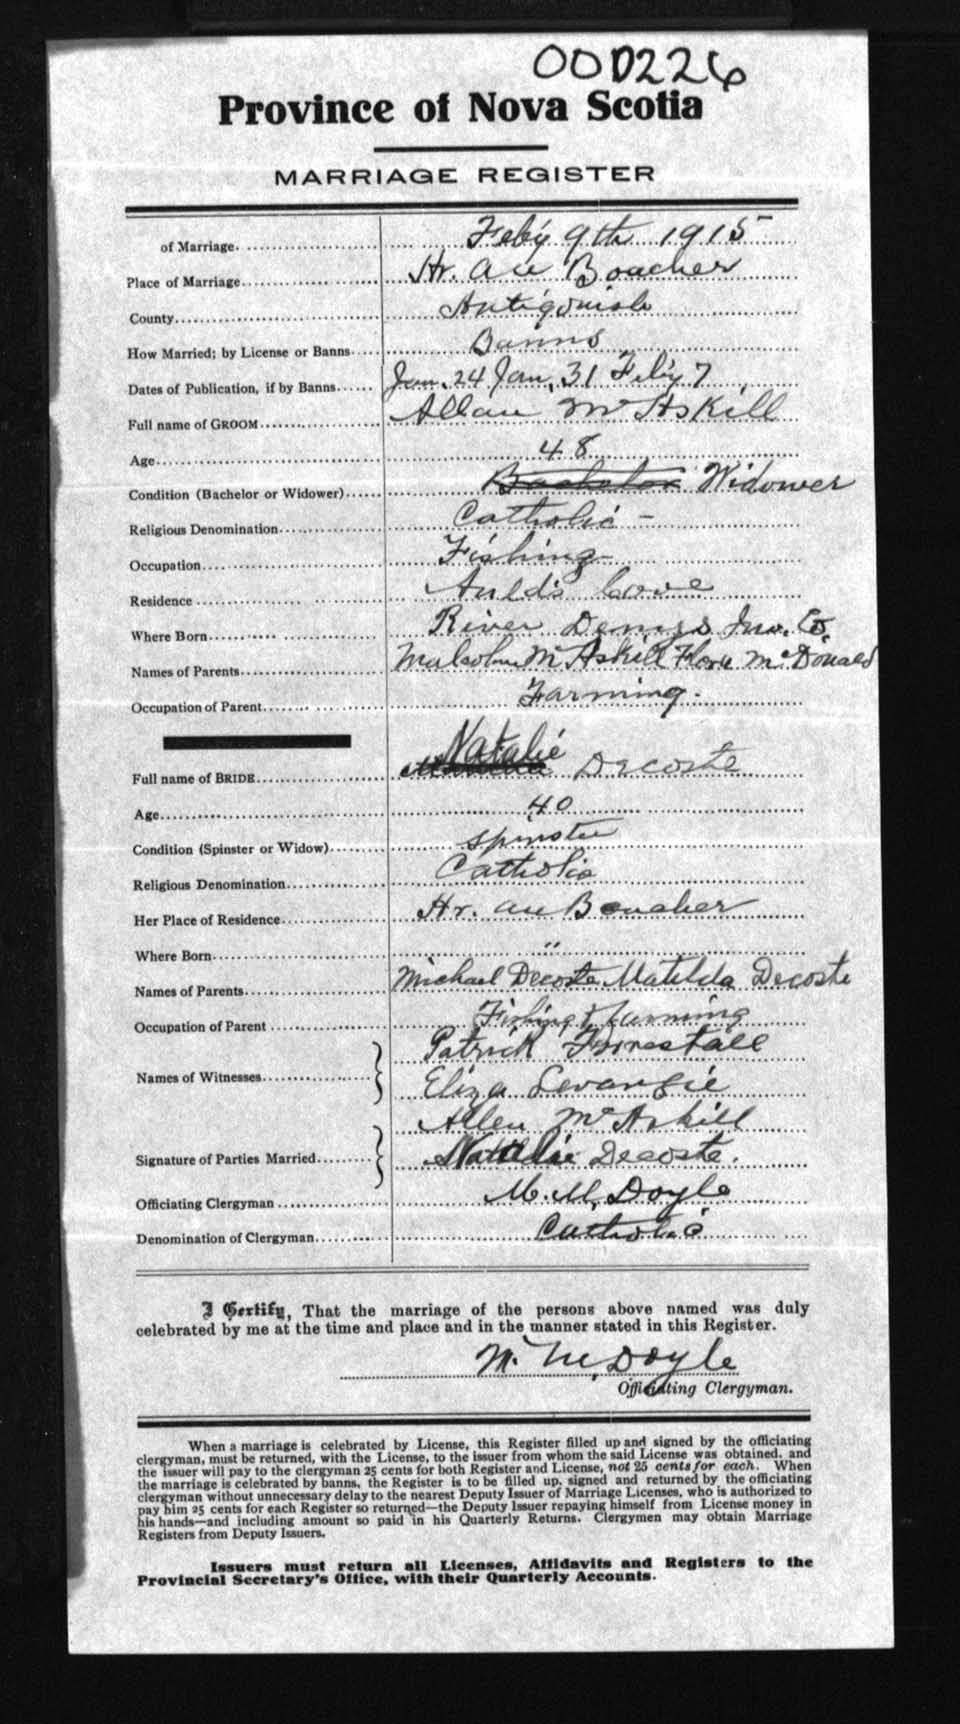 00D226
Province of Nova Scotia
MARRIAGE REGISTER
of Marriage. Feb'y 9th 1915
Place of Marriage Hr. au Boucher
County Antigonish
How Married; by License or Banns Banns
Dates of Publication, if by Banns Jan. 24 Jan. 31 Feb'y 7
Full name of GROOM Allan McAskill
Age 48
Condition (Bachelor or Widower) Bachelor Widower
Religious Denomination Catholic -
Occupation Fishing
Residence Auld's Cove
Where Born River Denys Inv. Co.
Names of Parents Malcolm McAskill Flora McDonald
Occupation of Parent Farming.
Natalie
Full name of BRIDE Decoste
Age 40
Condition (Spinster or Widow) Spinster
Religious Denomination Catholic
Her Place of Residence Hr. au Boucher
Where Born "
Names of Parents Michael Decoste Matilda Decoste
Occupation of Parent Fishing & farming
Patrick Forrestall
Names of Witnesses
Eliza Levangie
Allen McAskill
Signature of Parties Married Natalie Decoste.
Officiating Clergyman M. M. Doyle
Denomination of Clergyman Catholic
I Certify, That the marriage of the persons above named was duly
celebrated by me at the time and place and in the manner stated in this Register.
M. M. Doyle
Officiating Clergyman.
When a marriage is celebrated by License, this Register filled up and signed by the officiating
clergyman, must be returned, with the License, to the issuer from whom the said License was obtained, and
the issuer will pay to the clergyman 25 cents for both Register and License, not 25 cents for each. When
the marriage is celebrated by banns, the Register is to be filled up, signed and returned by the officiating
clergyman without unnecessary delay to the nearest Deputy Issuer of Marriage Licenses, who is authorized to
pay him 25 cents for each Register so returned—the Deputy Issuer repaying himself from License money in
his hands—and including amount so paid in his Quarterly Returns. Clergymen may obtain Marriage
Registers from Deputy Issuers.
Issuers must return all Licenses, Affidavits and Registers to the
Provincial Secretary's Office, with their Quarterly Accounts.